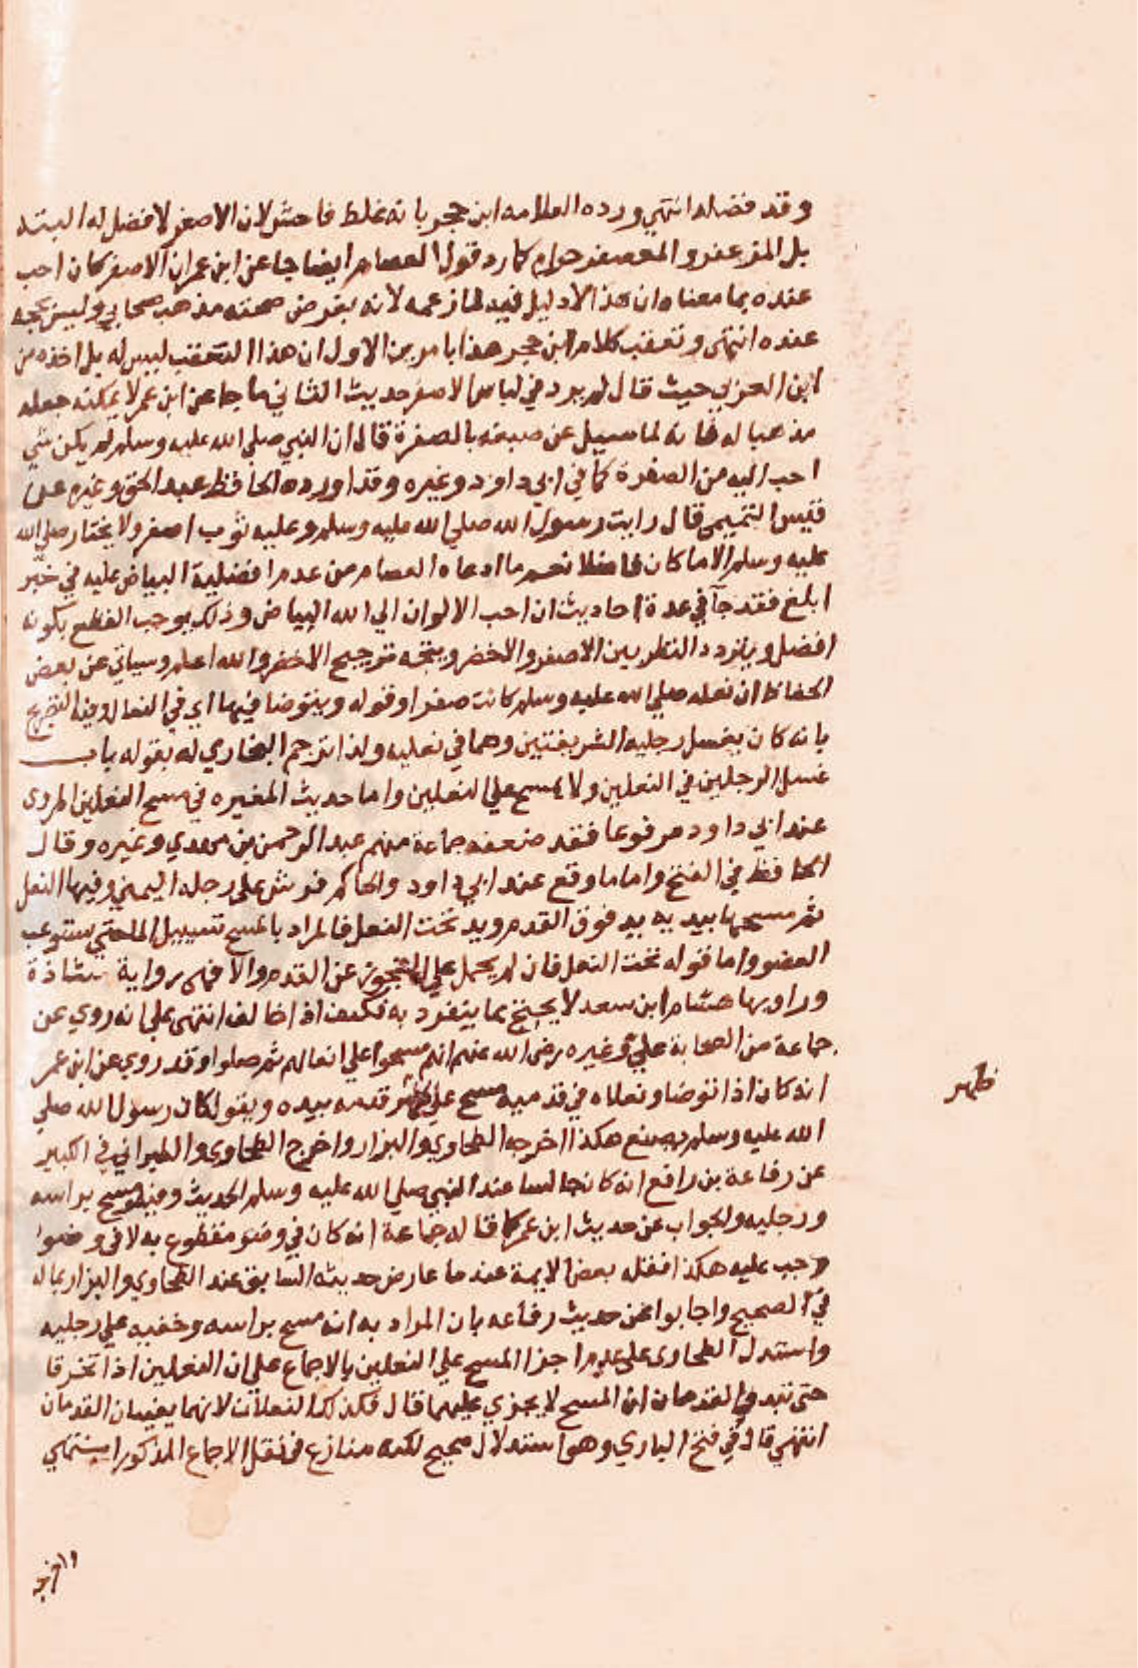 وقد فضله انتهي ورده العلامه ابن حجر بانه غلط فاحش لان الاصفر لا فضل له البته
بل المزعفر والمعصفر حرام كما رد قول العصام ايضا جا عن ابن عمر ان الاصفر كان احب
عنده بما معناه ان هذا لا دليل فيه لما زعمه لانه بفرض صحته مذهب صحابي وليس بحجه
عنده انتهى وتعقب كلام ابن حجر هذا بامرين الاول ان هذا التعقب ليس له بل اخذه من
ابن العربي حيث قال لم يرد في لباس الاصفر حديث الثاني ما جا عن ابن عمر لا يمكنه جعله
مذهبا له فانه لما سييل عن صبغه بالصفرة قال ان النبي صلي الله عليه وسلم لم يكن شي
احب اليه من الصفرة كما في ابي داود وغيره وقد اورده الحافظ عبد الحق وغيره عن
قيس التميمى قال رايت رسول الله صلي الله عليه وسلم وعليه ثوب اصفر ولا يختار صلي الله
عليه وسلم الا ما كان فاضلا نعم ما ادعاه العصام من عدم افضلية البياض عليه في حيز
ابلغ فقد جآ في عدة احاديث ان احب الالوان الي الله البياض وذلك يوجب القطع بكونه
افضل ويتردد النظر بين الاصفر والاخضر ويتجه ترجيح الاخضر والله اعلم وسياتي عن بعض
الحفاظ ان نعله صلي الله عليه وسلم كانت صفرا وقوله ويتوضا فيها اي في النعال وفيه التصريح
بانه كان يغسل رجليه الشريفتين وهما في نعليه ولذا ترجم البخاري له بقوله باب
غسل الرجلين في النعلين ولا يمسح علي النعلين واما حديث المغيره في مسح النعلين المروى
عند ابي داود مرفوعا فقد ضعفه جماعة منهم عبد الرحمن بن مهدي وغيره وقال
الحافظ في الفتح واما ما وقع عند ابي داود والحاكم فرش على رجله اليمني وفيها النعل
ثم مسحها بيديه يد فوق القدم ويد تحت النعل فالمراد بالمسح تسييل الما حتي يستوعب
العضو واما قوله تحت النعل فان لم يحمل علي التجوز عن القدم والا فهي رواية شاذة
وراويها هشام ابن سعد لا يحتج بما يتفرد به فكيف اذا خالف انتهى علي انه روي عن
جماعة من الصحابة علي وغيره رضي الله عنهم انهم مسحوا علي نعالهم ثم صلوا وقد روي عن ابن عمر
انه كان اذا توضا ونعلاه في قدميه مسح علي ظهر قدمه بيده ويقول كان رسول الله صلي
ظهر
الله عليه وسلم يصنع هكذا اخرجه الطحاوي والبزار واخرج الطحاوي والطبراني في الكبير
عن رفاعة بن رافع انه كان جالسا عند النبي صلي الله عليه وسلم الحديث وفيه ومسح براسه
ورجليه والجواب عن حديث ابن عمر كما قاله جماعة انه كان في وضو متطوع به لا في وضوا
وجب عليه هكذا نقله بعض الايمة عند ما عارض حديثه السابق عند الطحاوي والبزار بما له
في الصحيح واجابوا عن حديث رفاعه بان المراد به انه مسح براسه وخفيه علي رجليه
واستدل الطحاوي على عدم اجزا المسح علي النعلين بالاجماع على ان النعلين اذا تخرقا
حتى تبدو القدمان ان المسح لا يجزي عليهما قال فكذلك النعلان لانهما يغيبان القدمان
انتهي قال في فتح الباري وهو استدلال صحيح لكنه منازع في نقل الاجماع المذكور انتهي